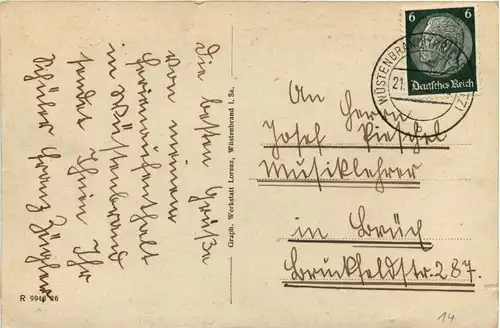 Die besten Grüße
von meinem
Ferienaufenthalt
in Wüstenbrand
sendet Ihnen Ihr
Schüler Franz
Graph. Werkstatt Lorenz, Wüstenbrand i. Sa.
R 9946 26
6 6
Deutsches Reich
WÜSTENBRAND
21.
b
An Herrn
Josef Pieschel
Musiklehrer
in Brüch
Brückfeldstr. 287.
14